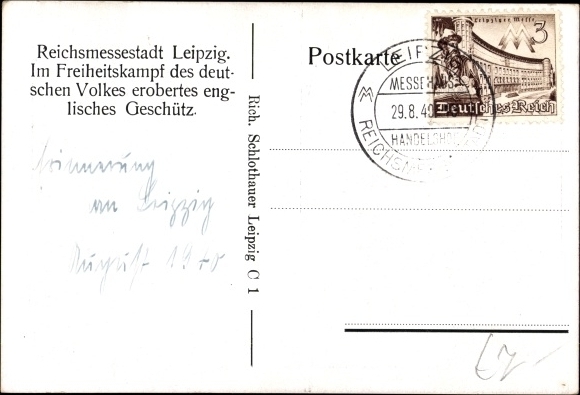 Reichsmessestadt Leipzig.
Im Freiheitskampf des deut-
schen Volkes erobertes eng-
lisches Geschütz.
Erinnerung
an Leipzig
August 1940
Rich. Schlothauer Leipzig C 1
Postkarte
Leipziger Messe
3
Deutsches Reich
LEIPZIG
MESSEHAUS
29.8.40
HANDELSHO
REICHSME